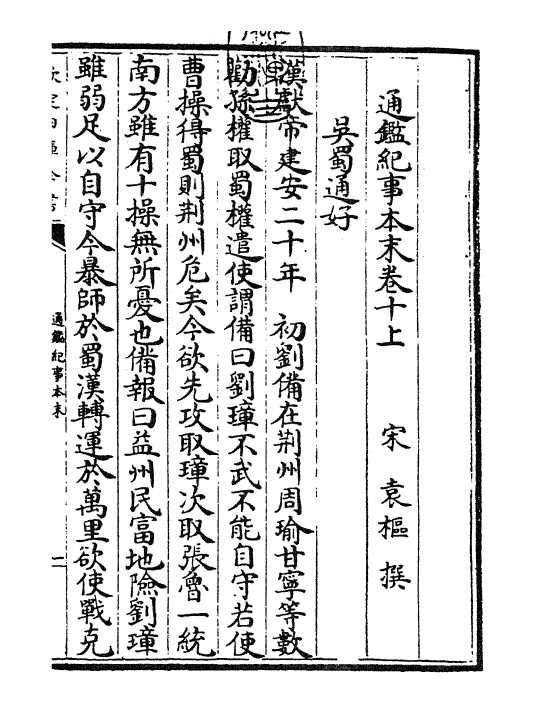 通鑑紀事本末卷十上
宋 袁樞 撰
吳蜀通好
漢獻帝建安二十年 初劉備在荆州周瑜甘寧等數
勸孫權取蜀權遣使謂備曰劉璋不武不能自守若使
曹操得蜀則荆州危矣今欲先攻取璋次取張魯一統
南方雖有十操無所憂也備報曰益州民富地險劉璋
雖弱足以自守今暴師於蜀漢轉運於萬里欲使戰克
通鑑紀事本末